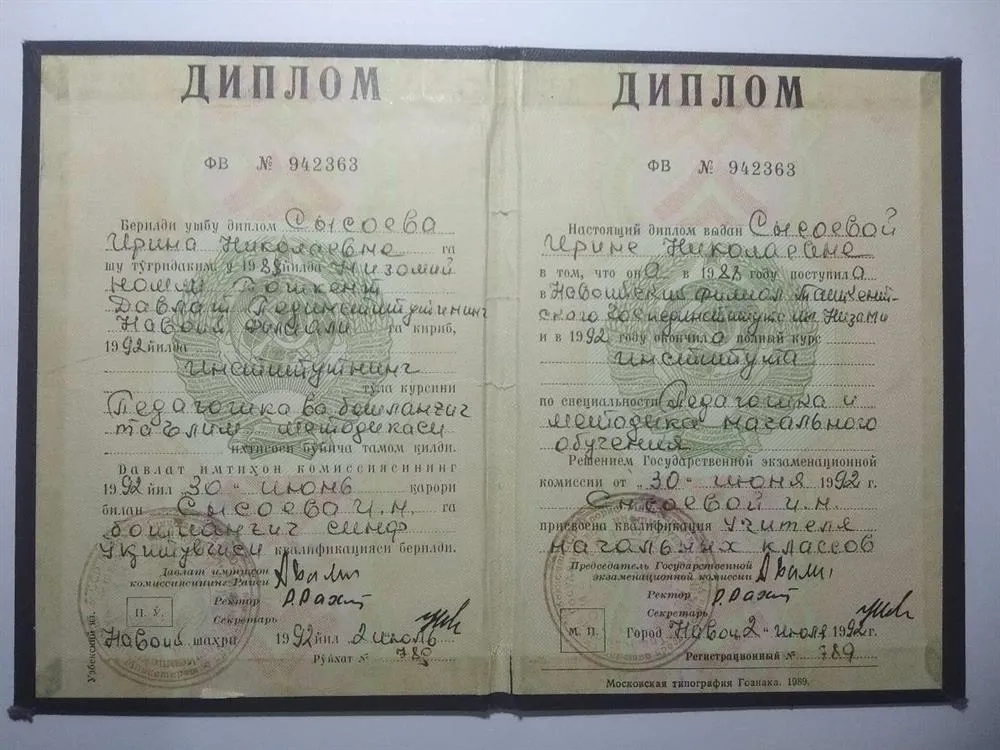 ДИПЛОМ
ФВ № 942363
Берилди ушбу диплом Сысоева
Ирина Николаевна га
шу тўғридаким, у 1988 йилда Низомий
номли Тошкент
Давлат Пединститутининг
Навоий филиали га кириб,
1992 йилда
институтнинг
тўла курсини
Педагогика ва бошланғич
таълим методикаси
ихтисоси бўйича тамом қилди.
Давлат имтиҳон комиссиясининг
1992 йил "30" июнь қарори
билан Сысоева И.Н. га
бошланғич синф
ўқитувчиси квалификацияси берилди.
Давлат имтиҳон
комиссиясининг Раиси
Ректор
Секретарь
П. Ў.
Навоий шаҳри 1992 йил 2 июль
Рўйхат № 789
Узбекский яз.
ДИПЛОМ
ФВ № 942363
Настоящий диплом выдан Сысоевой
Ирине Николаевне
в том, что она в 1988 году поступила
в Навоийский филиал Ташкент-
ского Госпединститута им. Низами
и в 1992 году окончила полный курс
института
по специальности Педагогика и
методика начального
обучения
Решением Государственной экзаменационной
комиссии от "30" июня 1992 г.
Сысоевой И.Н.
присвоена квалификация учителя
начальных классов
Председатель Государственной
экзаменационной комиссии
Ректор
Секретарь
М. П.
Город Навои "2" июля 1992 г.
Регистрационный № 789
Московская типография Гознака. 1989.